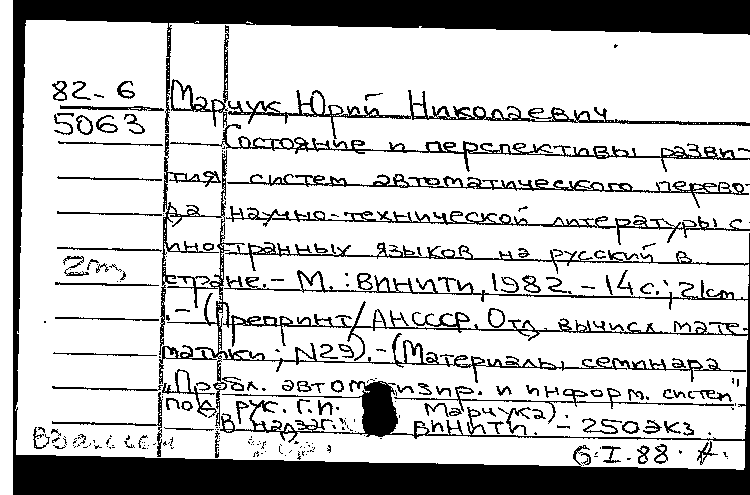 82-6 Марчук, Юрий Николаевич
5063 Состояние и перспективы разви-
тия систем автоматического перево-
да научно-технической литературы с
иностранных языков на русский в
2m стране. - М.: ВИНИТИ, 1982. - 14 с.; 21 cm
. - (Препринт / АНСССР. Отд. вычисл. мате-
матики; N29). - (Материалы семинара
"Пробл. автоматизир. и информ. систем"
под рук. Г.И. Марчука).
В надзаг.: ВИНИТИ. - 250 экз.
6.I.88.